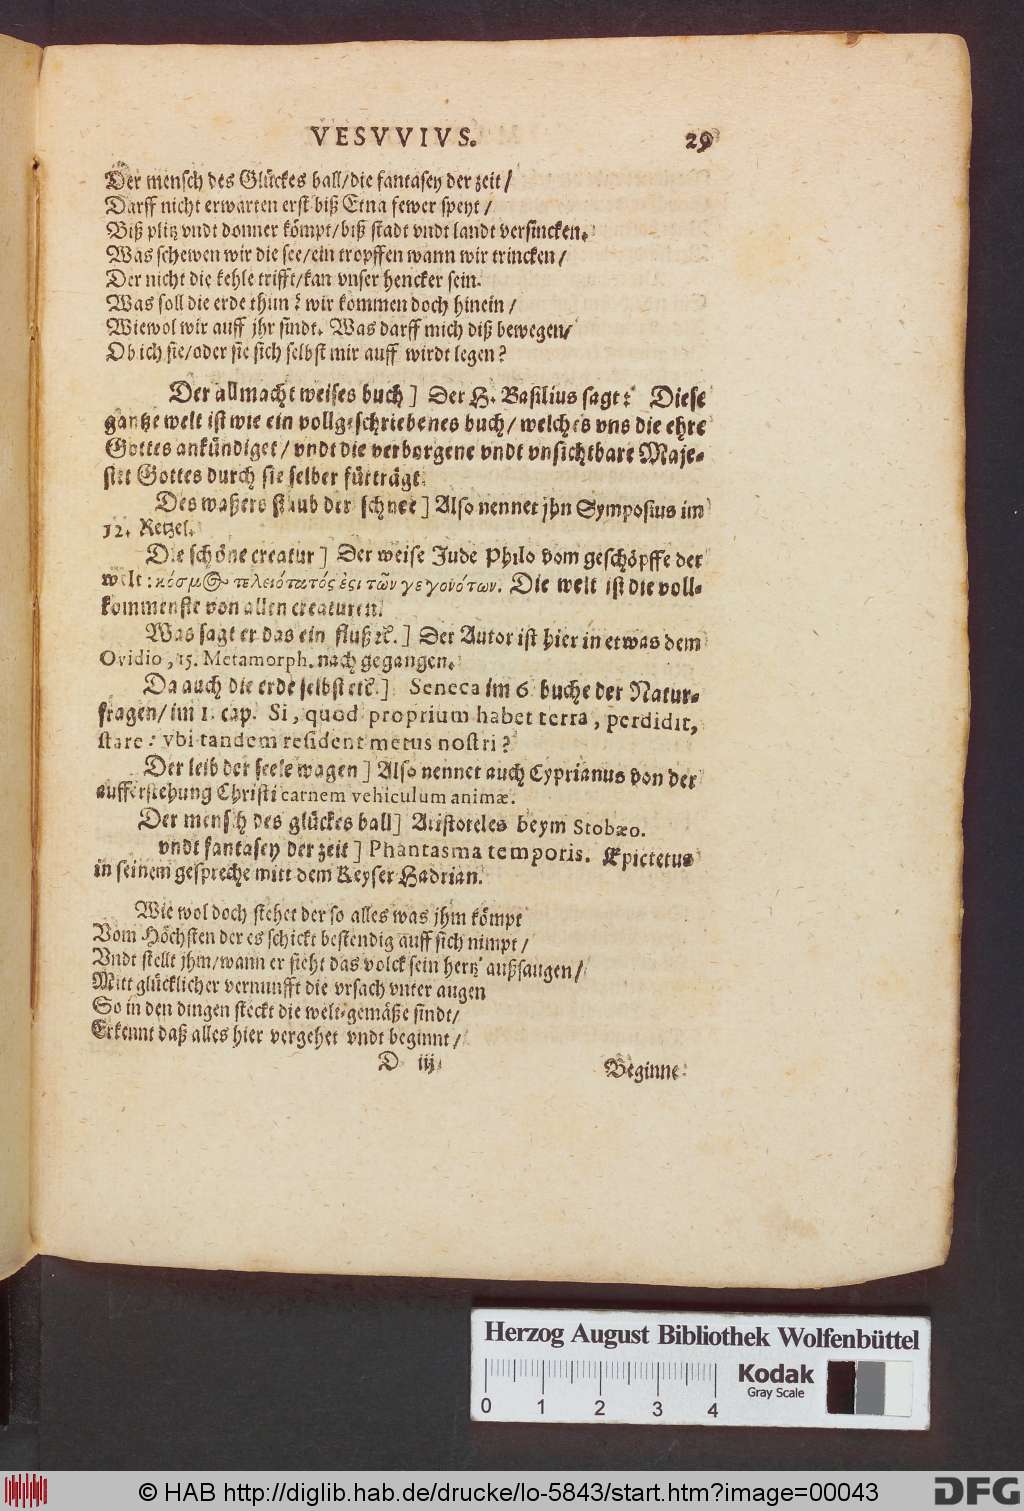 VESVVIVS. 29
Der mensch des Glückes ball/die fantasey der zeit/
Darff nicht erwarten erst biß Etna fewer speyt/
Biß plitz vndt donner kömpt/biß stadt vndt landt versincken.
Was schewen wir die see/ein tropffen wann wir trincken/
Der nicht die kehle trifft/kan vnser hencker sein.
Was soll die erde thun? wir kommen doch hinein/
Wiewol wir auff jhr sindt. Was darff mich diß bewegen/
Ob ich sie/oder sie sich selbst mir auff wirdt legen?
Der allmacht weises buch] Der H. Basilius sagt: Diese
gantze welt ist wie ein vollgeschriebenes buch/ welches vns die ehre
Gottes ankündiget/ vndt die verborgene vndt vnsichtbare Maje-
stet Gottes durch sie selber fürträgt.
Des waßers staub der schnee] Also nennet jhn Symposius im
12. Retzel.
Die schöne creatur] Der weise Jude Philo vom geschöpffe der
welt: κόσμος τελειότατός ἐςι τῶν γεγονότων. Die welt ist die voll-
kommenste von allen creaturen.
Was sagt er das ein fluß ꝛc.] Der Autor ist hier in etwas dem
Ovidio, 15. Metamorph. nach gegangen.
Da auch die erde selbst etc.] Seneca im 6 buche der Natur-
fragen/ im 1. cap. Si, quod proprium habet terra, perdidit,
stare: vbi tandem resident metus nostri?
Der leib der seele wagen] Also nennet auch Cyprianus von der
aufferstehung Christi carnem vehiculum animæ.
Der mensch des glückes ball] Aristoteles beym Stobæo.
vndt fantasey der zeit] Phantasma temporis. Æpictetus
in seinem gespreche mitt dem Keyser Hadrian.
Wie wol doch stehet der so alles was jhm kömpt
Vom Höchsten der es schickt bestendig auff sich nimpt/
Vndt stellt jhm/wann er sieht das volck sein hertz' außsaugen/
Mitt glücklicher vernunfft die vrsach vnter augen
So in den dingen steckt die welt-gemäße sindt/
Erkennt daß alles hier vergehet vndt beginnt/
D iij Beginne
Herzog August Bibliothek Wolfenbüttel
Kodak
Gray Scale
0 1 2 3 4
© HAB http://diglib.hab.de/drucke/lo-5843/start.htm?image=00043
DFG